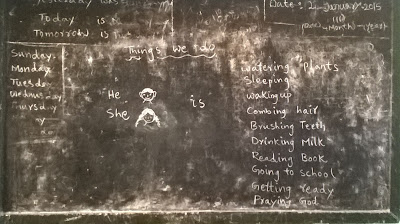 Yesterday was
Today is
Tomorrow is
Date: 2-January-2015
(Date-Month-Year)
Sunday
Monday
Tuesda
Wednesday
Thursday
y
Things we do
He
She
is
watering Plants
Sleeping
waking up
Combing hair
Brushing Teeth
Drinking Milk
Reading Book
Going to school
Getting ready
Praying God